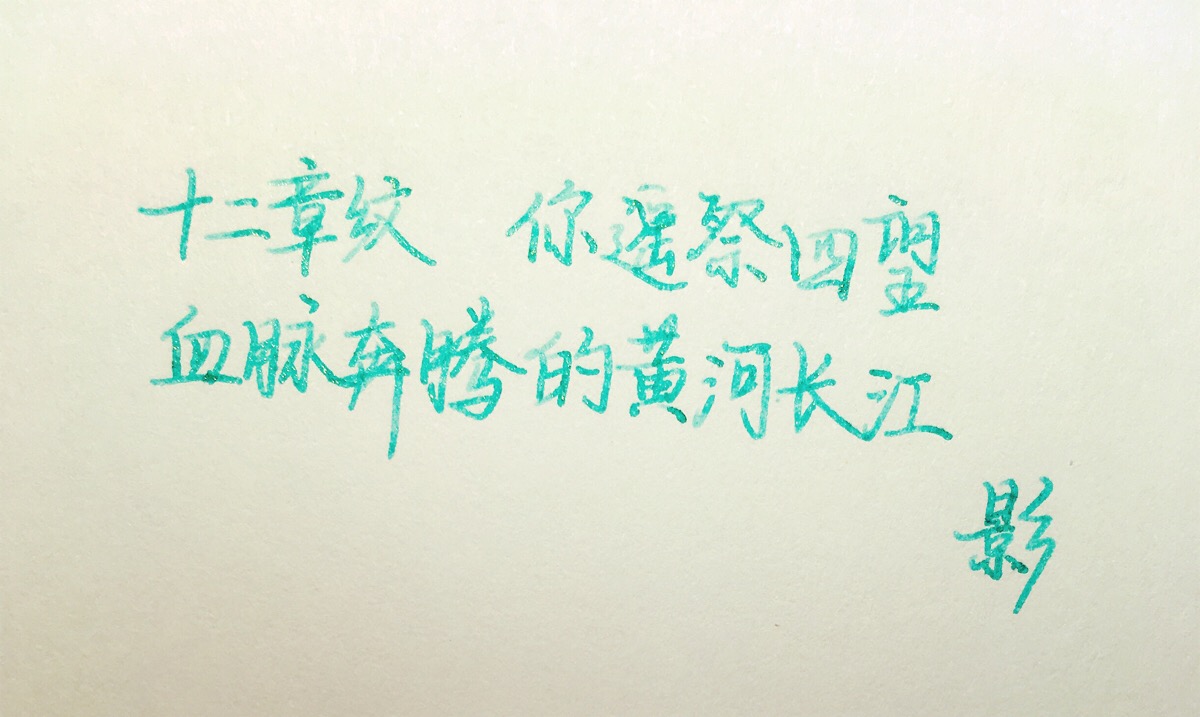 十二章纹 你遥祭四望
血脉奔腾的黄河长江
影